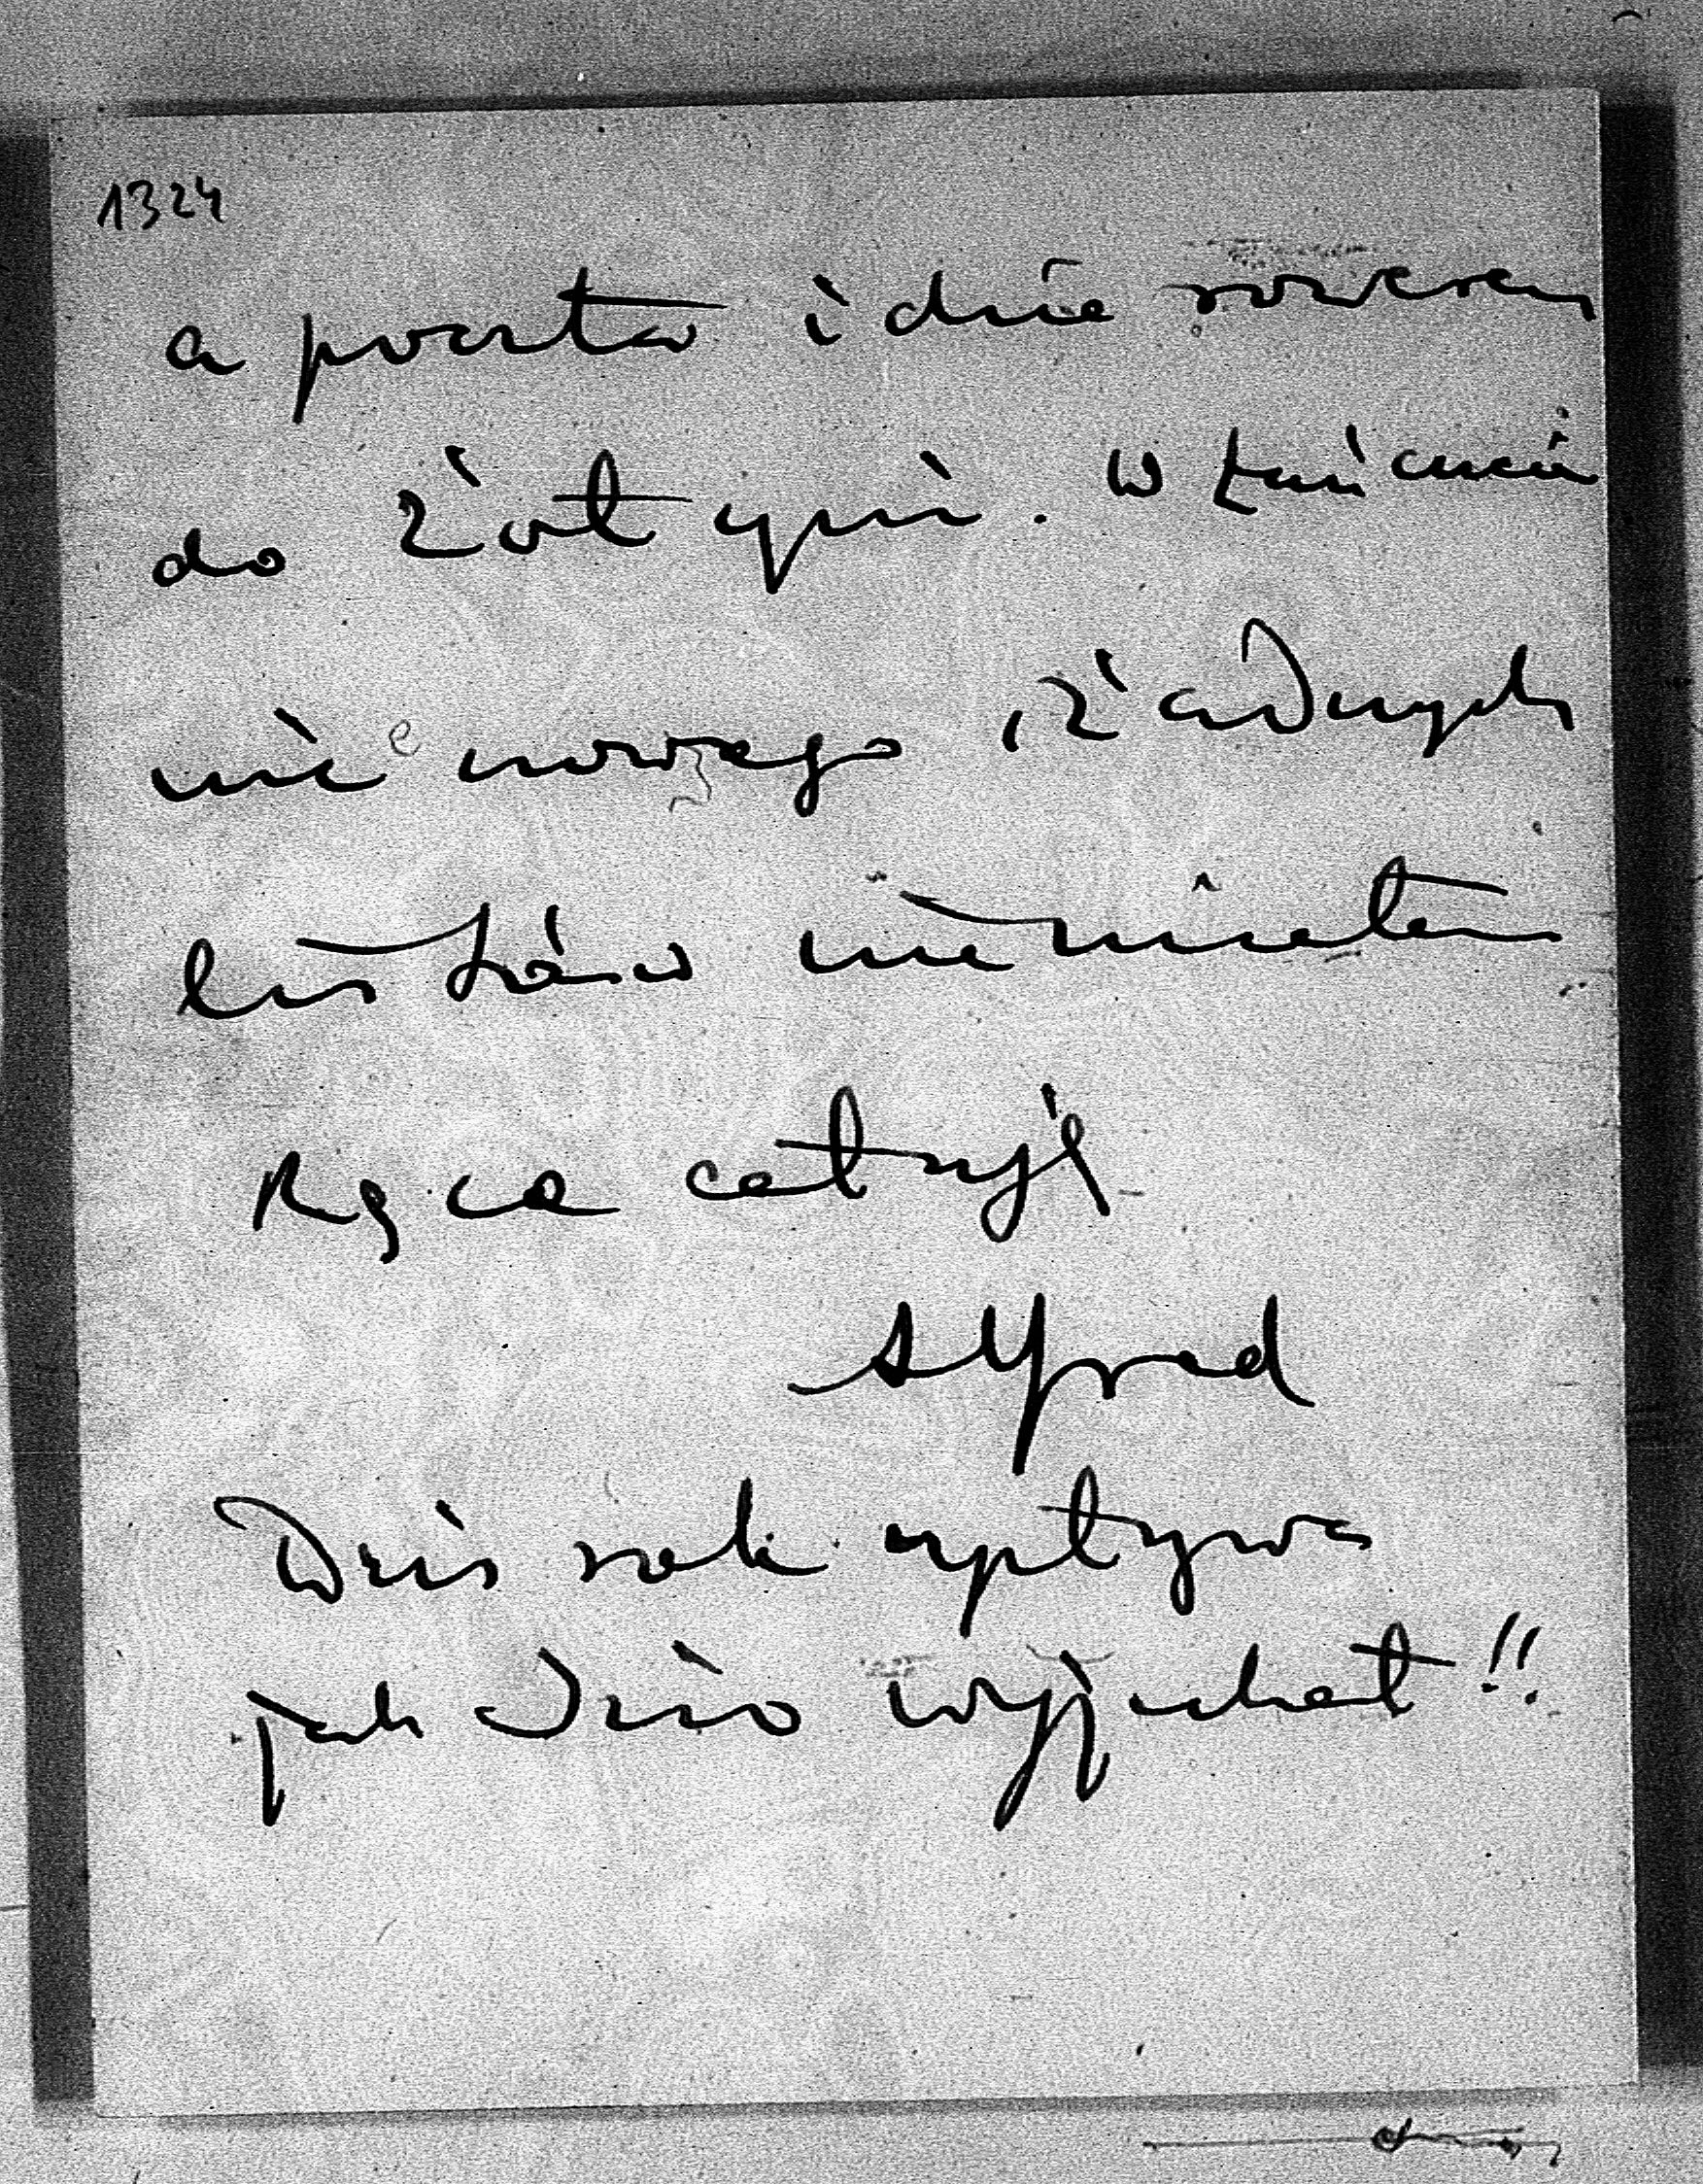 1324
a poczta idzie rowerem
do Żołyni. W Łańcucie
nic nowego, żadnych
listków nie miałem
Ręce całuję
Alfred
Dziś rok upływa
jak Dzio wyjechał!!